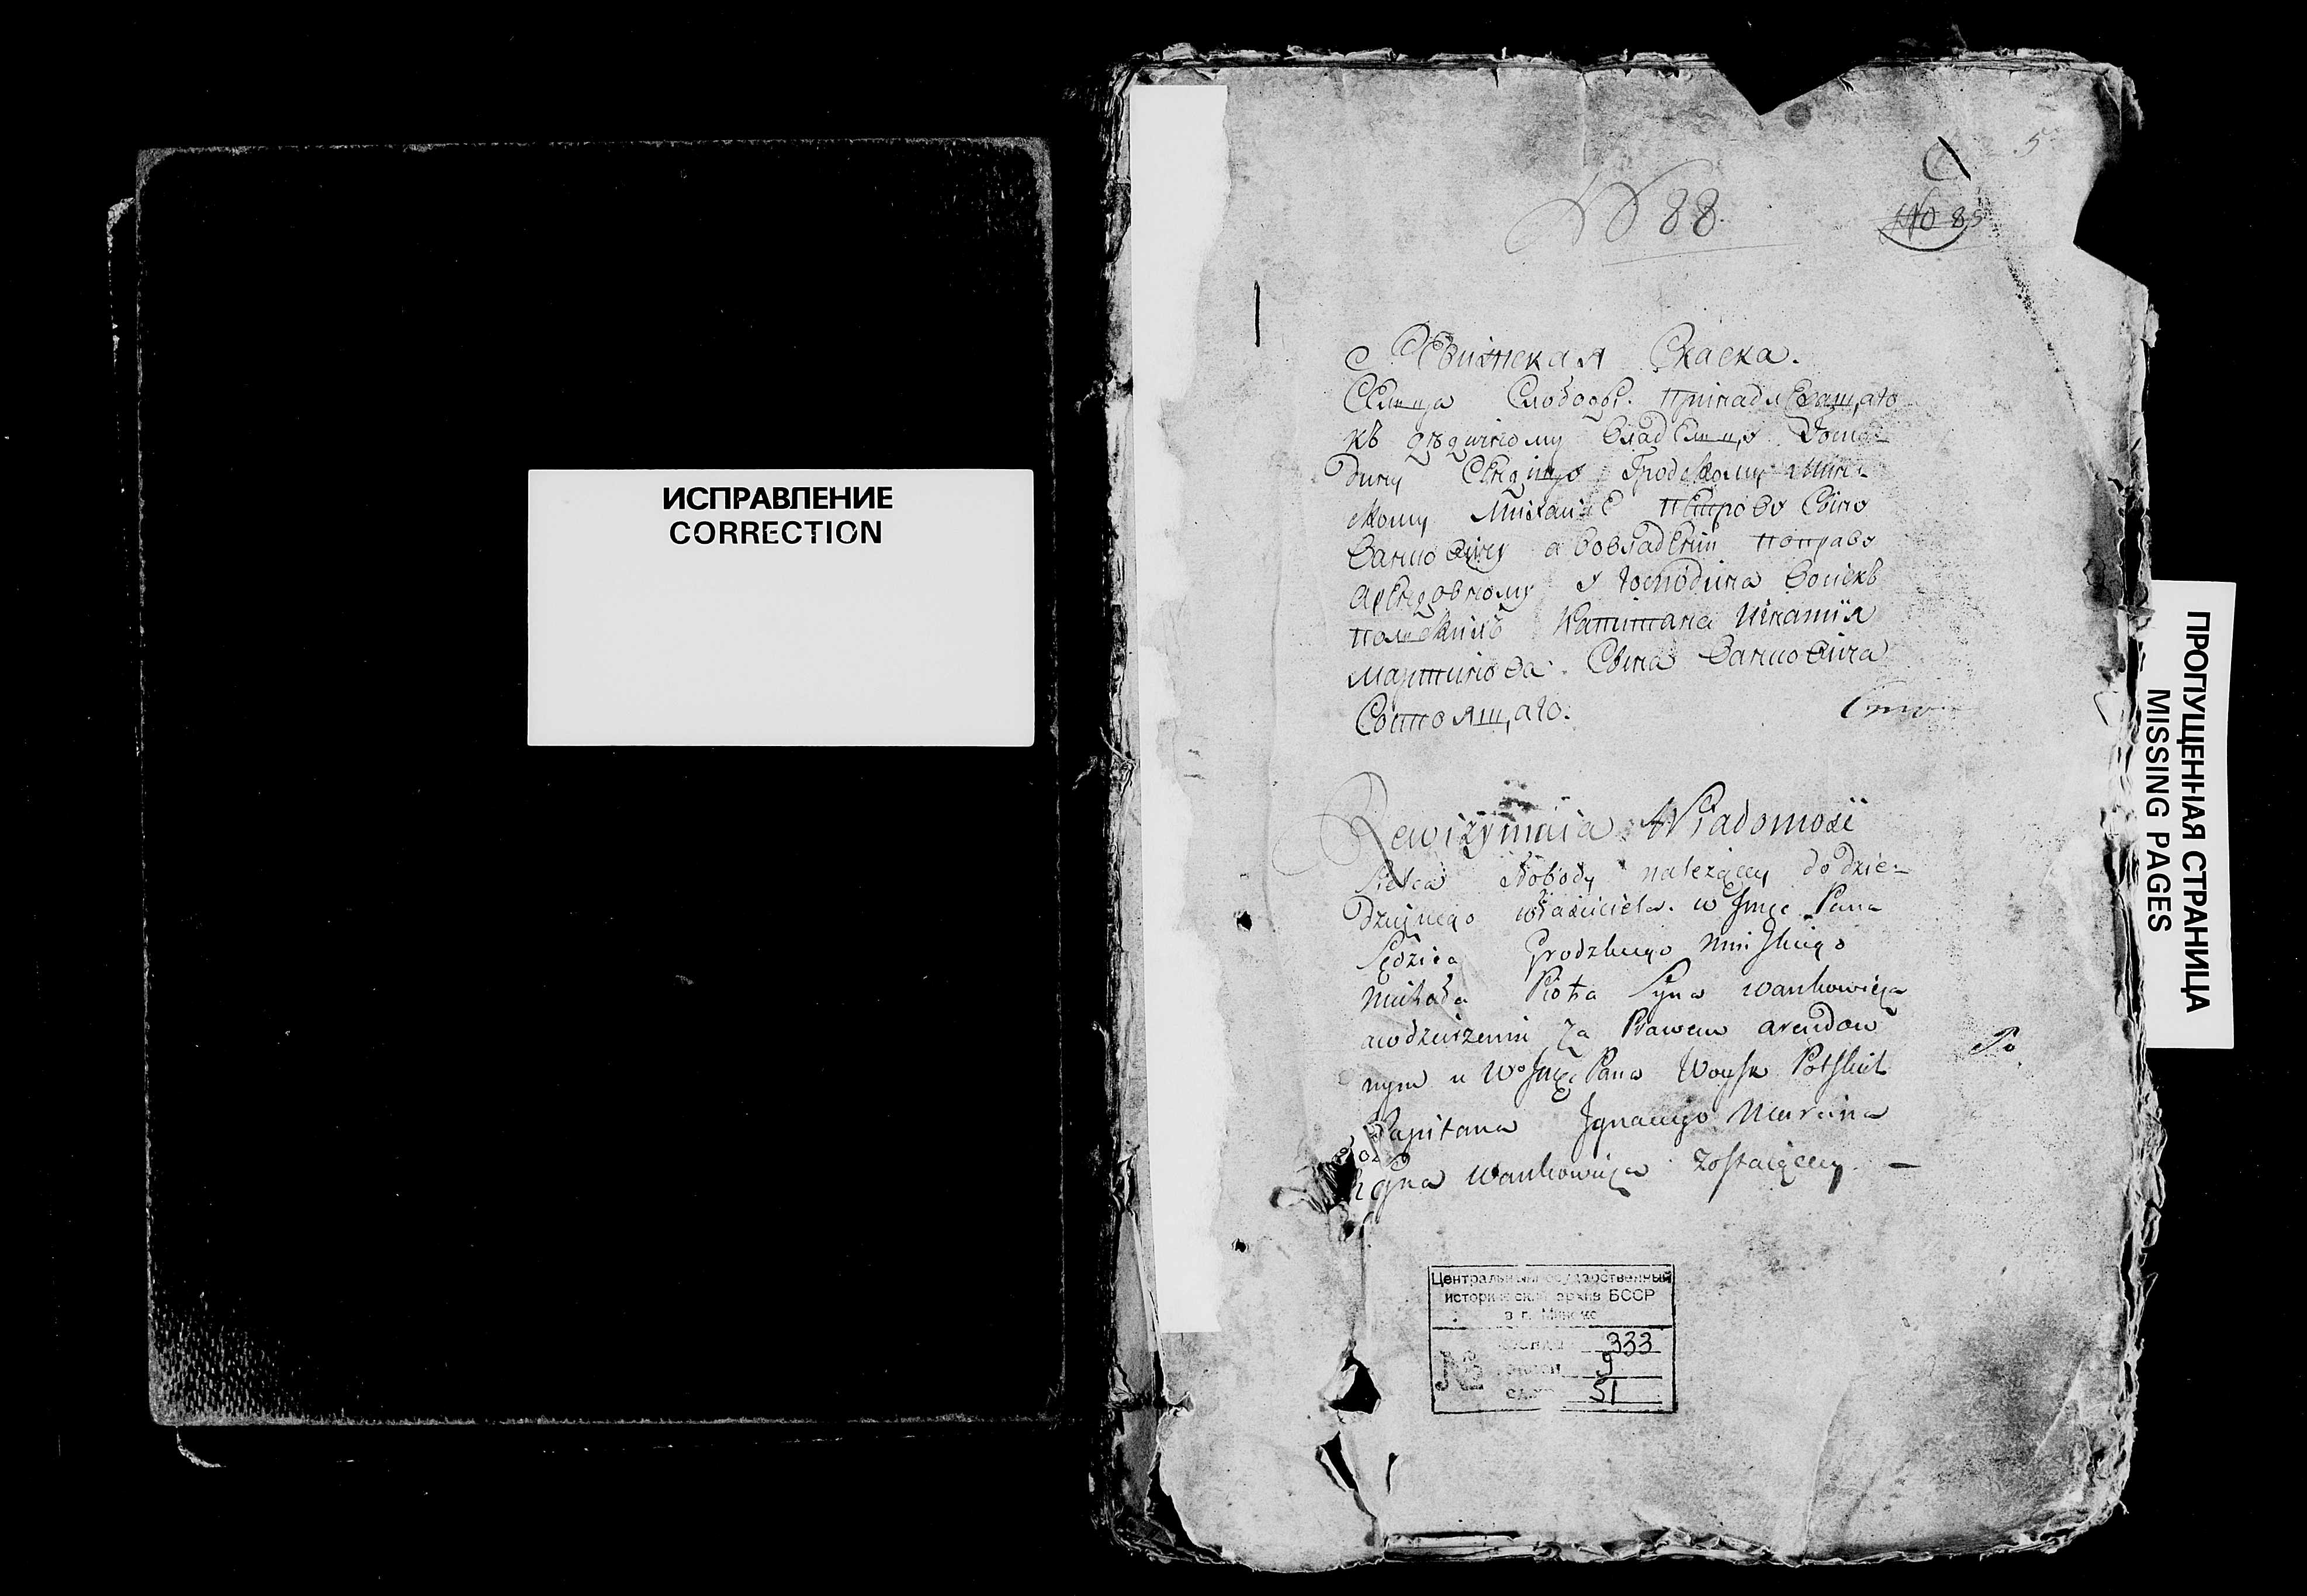 ИСПРАВЛЕНИЕ
CORRECTION
5
№ 88
№ 85
Ревижская Скаска.
Селца Слободы. Принадлежащаго
къ дѣдичному владелцу Госпо-
дину Сендзцу Гродскому Минс-
кому Михаиле Петрову Сыно
Ванковичу а вовладении поправу
Арендовному у Господина Войскъ
полскихъ Капитана Игнатия
Мартинова Сына Ванковича
Состоящаго.
Rewizymaia Wiadomość
Sielca Słobody należącey do dzie-
dzicznego właściciela w Jmci Pana
Sędzica Grodzkiego Mińskiego
Michała Piotra Syna Wankowicza
a w dzierżeniu za Prawem arendow
nym u Wo Jmci Pana Woysk Polskich
Kapitana Ignacego Marcina
Syna Wankowicza zostaiącey. —
Центральный государственный
исторический архив БССР
в г. Минске
№
фонд 333
опись 9
ед.хр. 51
ПРОПУЩЕННАЯ СТРАНИЦА
MISSING PAGES